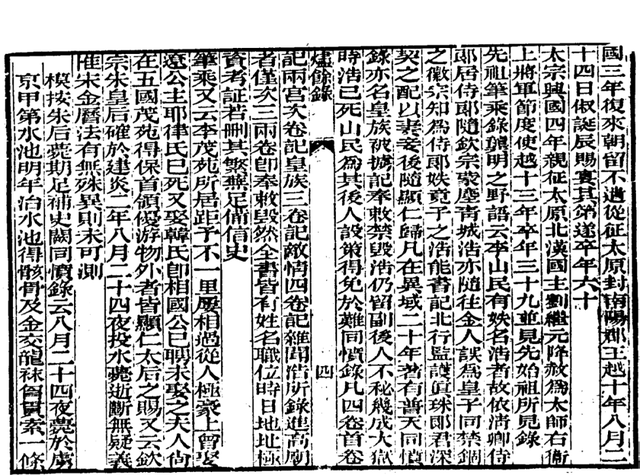 國三年復來朝留不遣從征太原封南陽郡王越十年八月二
十四日俶誕辰賜宴其弟遂卒年六十
太宗興國四年親征太原北漢國主劉繼元降赦爲太師右衛
上將軍節度使越十三年卒年三十九並見先始祖所見錄
先祖筆乘錄龔明之野語云李山民有姪名浩者故依淸卿侍
郎居侍郎隨欽宗蒙塵靑城浩亦隨往金人誤爲皇子同禁錮
之徽宗知爲侍郎姪竟子之浩能書記北行監護眞珠郎君深
契之配以妻妾後隨顯仁歸凡在異域二十年著有普天同憤
錄亦名皇族被擄記奉敕禁毀浩仍留副後人不秘幾成大獄
時浩已死山民爲其後人設策得免於難同憤錄凡四卷首卷
燼餘錄 四
記兩宮次卷記皇族三卷記敵情四卷記雜聞浩所錄進高廟
者僅次三兩卷卽奉敕毀然全書皆有姓名職位時日地址極
資考証若刪其繁蕪足備信史
筆乘又云李茂苑所居距予不一里屢相過從人極豪上曾娶
遼公主耶律氏已死又娶韓氏卽相國公已聘未娶之夫人尙
在五國茂苑得保首領優游物外者皆顯仁太后之賜又云欽
宗朱皇后確於建炎二年八月二十四夜投水薨逝斷無疑義
惟宋金曆法有無殊異則未可測
模按朱后薨期足補史闕同憤錄云八月二十四夜薨於虜
京甲第水池明年治水池得骸骨及金交龍袜貫索一條